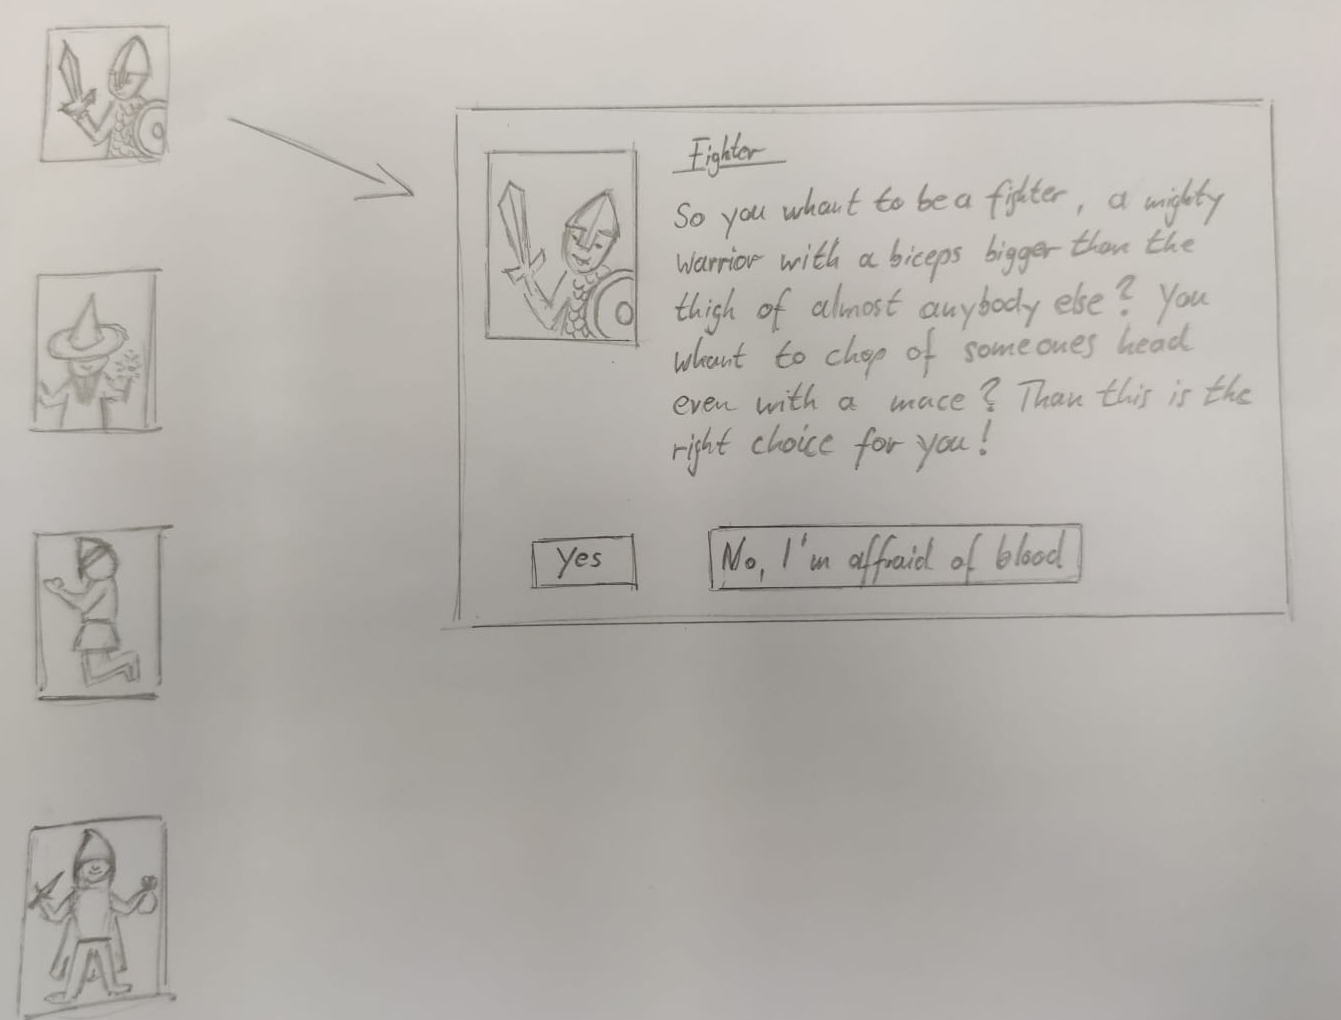 Fighter
So you whant to be a fighter, a mighty
warrior with a biceps bigger than the
thigh of almost anybody else? You
whant to chop of someones head
even with a mace? Than this is the
right choice for you!
Yes
No, I'm affraid of blood